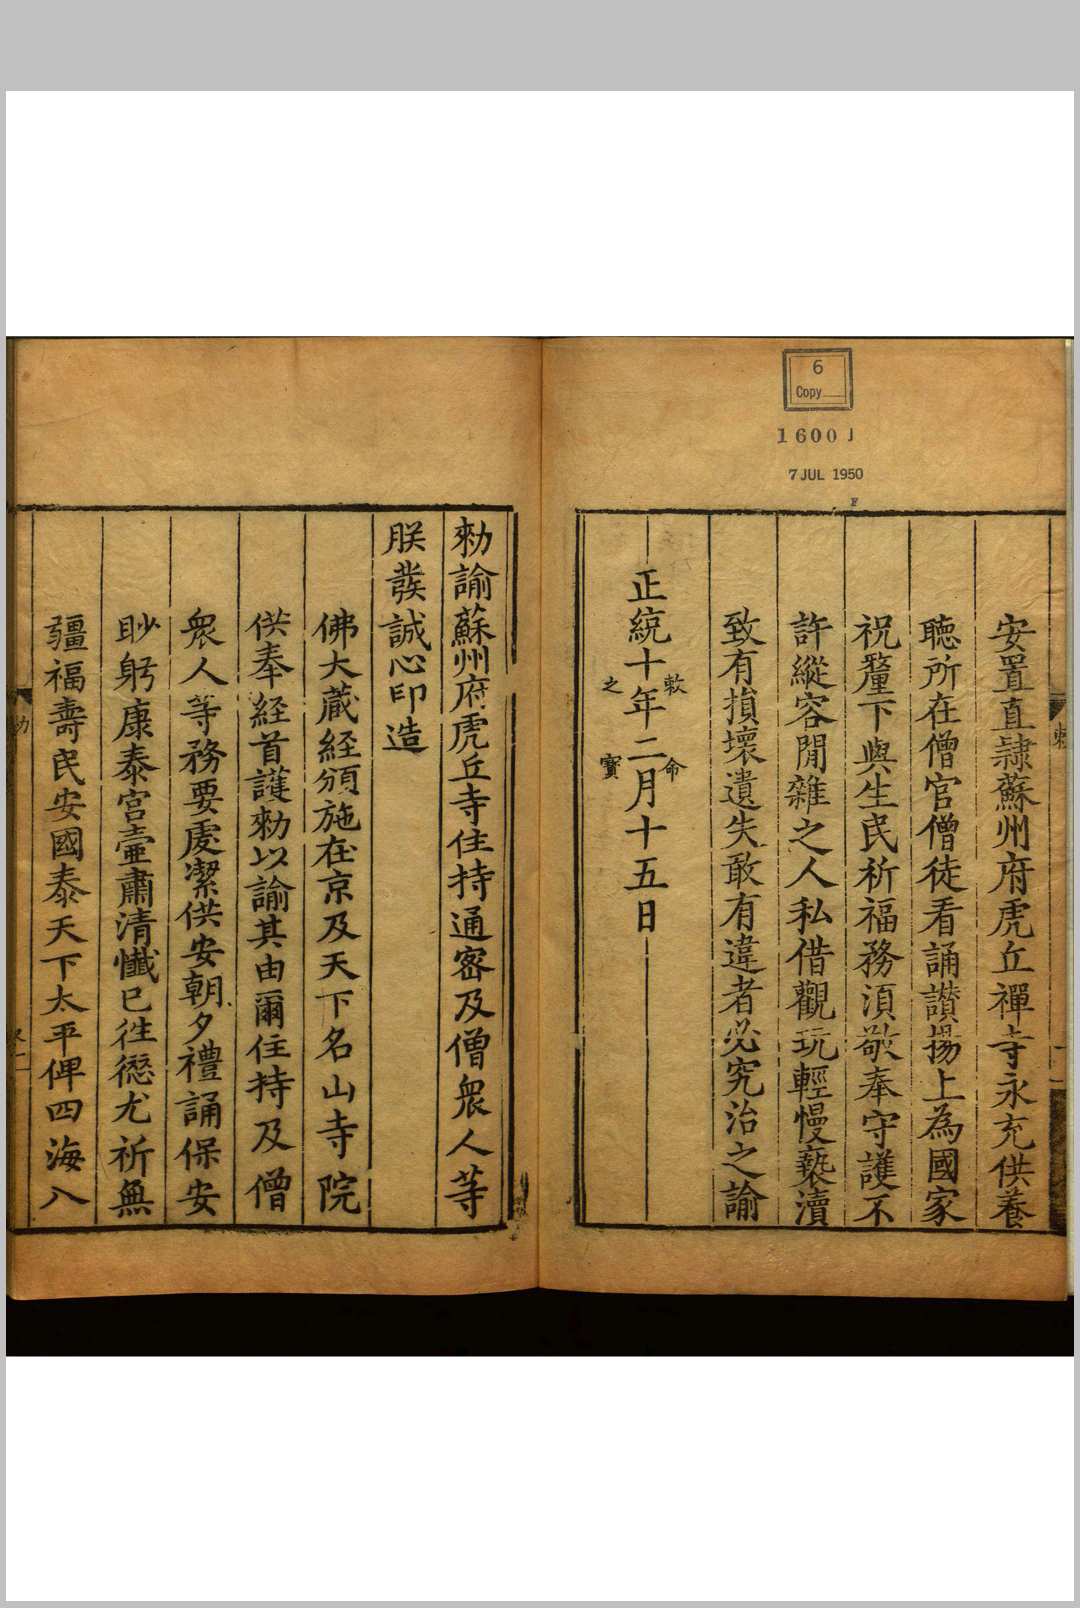 6
Copy
1600 J
7 JUL 1950
F
安置直隷蘇州府虎丘禪寺永充供養
聴所在僧官僧徒看誦讃揚上為國家
祝釐下與生民祈福務湏敬奉守護不
許縱容閒雜之人私借觀玩輕慢褻瀆
致有損壞遺失敢有違者必究治之諭
正統十年二月十五日
敕命
之寳
勑諭蘇州府虎丘寺住持通密及僧衆人等
朕發誠心印造
佛大藏経頒施在京及天下名山寺院
供奉経首護勑以諭其由爾住持及僧
衆人等務要處潔供安朝夕禮誦保安
眇躬康泰宫壼肅清懺已徃愆尤祈無
疆福壽民安國泰天下太平俾四海八